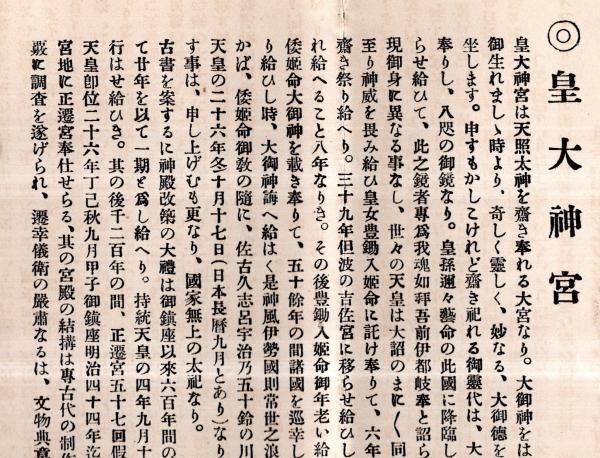 ◎皇大神宮
皇大神宮は天照太神を齋き奉れる大宮なり。大御神をは
御生れましゝ時より、奇しく靈しく、妙なる、大御德を
坐します。申すもかしこけれど齋き祀れる御靈代は、大
奉りし、八咫の御鏡なり。皇孫邇々藝命の此國に降臨し
らせ給ひて、此之鏡者專爲我魂如拜吾前伊都岐奉と詔ら
現御身に異なる事なし、世々の天皇は大詔のまに〱同
至り神威を畏み給ひ皇女豊鋤入姬命に託け奉りて、六年
齋き祭り給へり。三十九年但波の吉佐宮に移らせ給ひし
れ給へること八年なりき。その後豊鋤入姬命御年老い給
倭姬命大御神を戴き奉りて、五十餘年の間諸國を巡幸し
り給ひし時、大御神誨へ給はく是神風伊勢國則常世之浪
かば、倭姬命御敎の隨に、佐古久志呂宇治乃五十鈴の川
天皇の二十六年冬十月十七日(日本長曆九月とあり)なり
す事は、申し上げむも更なり、國家無上の太祀なり。
古書を案するに神殿改築の大禮は御鎭座以來六百年間の
て廿年を以て一期と爲し給へり。持統天皇の四年九月十
行はせ給ひき。其の後千二百年の間、正遷宮五十七回假
天皇卽位二十六年丁己秋九月甲子御鎭座明治四十四年迄
宮地に正遷宮奉仕せらる、其の宮殿の結搆は專古代の制作
嚴に調査を遂げられ、遷幸儀衛の嚴肅なるは、文物典章